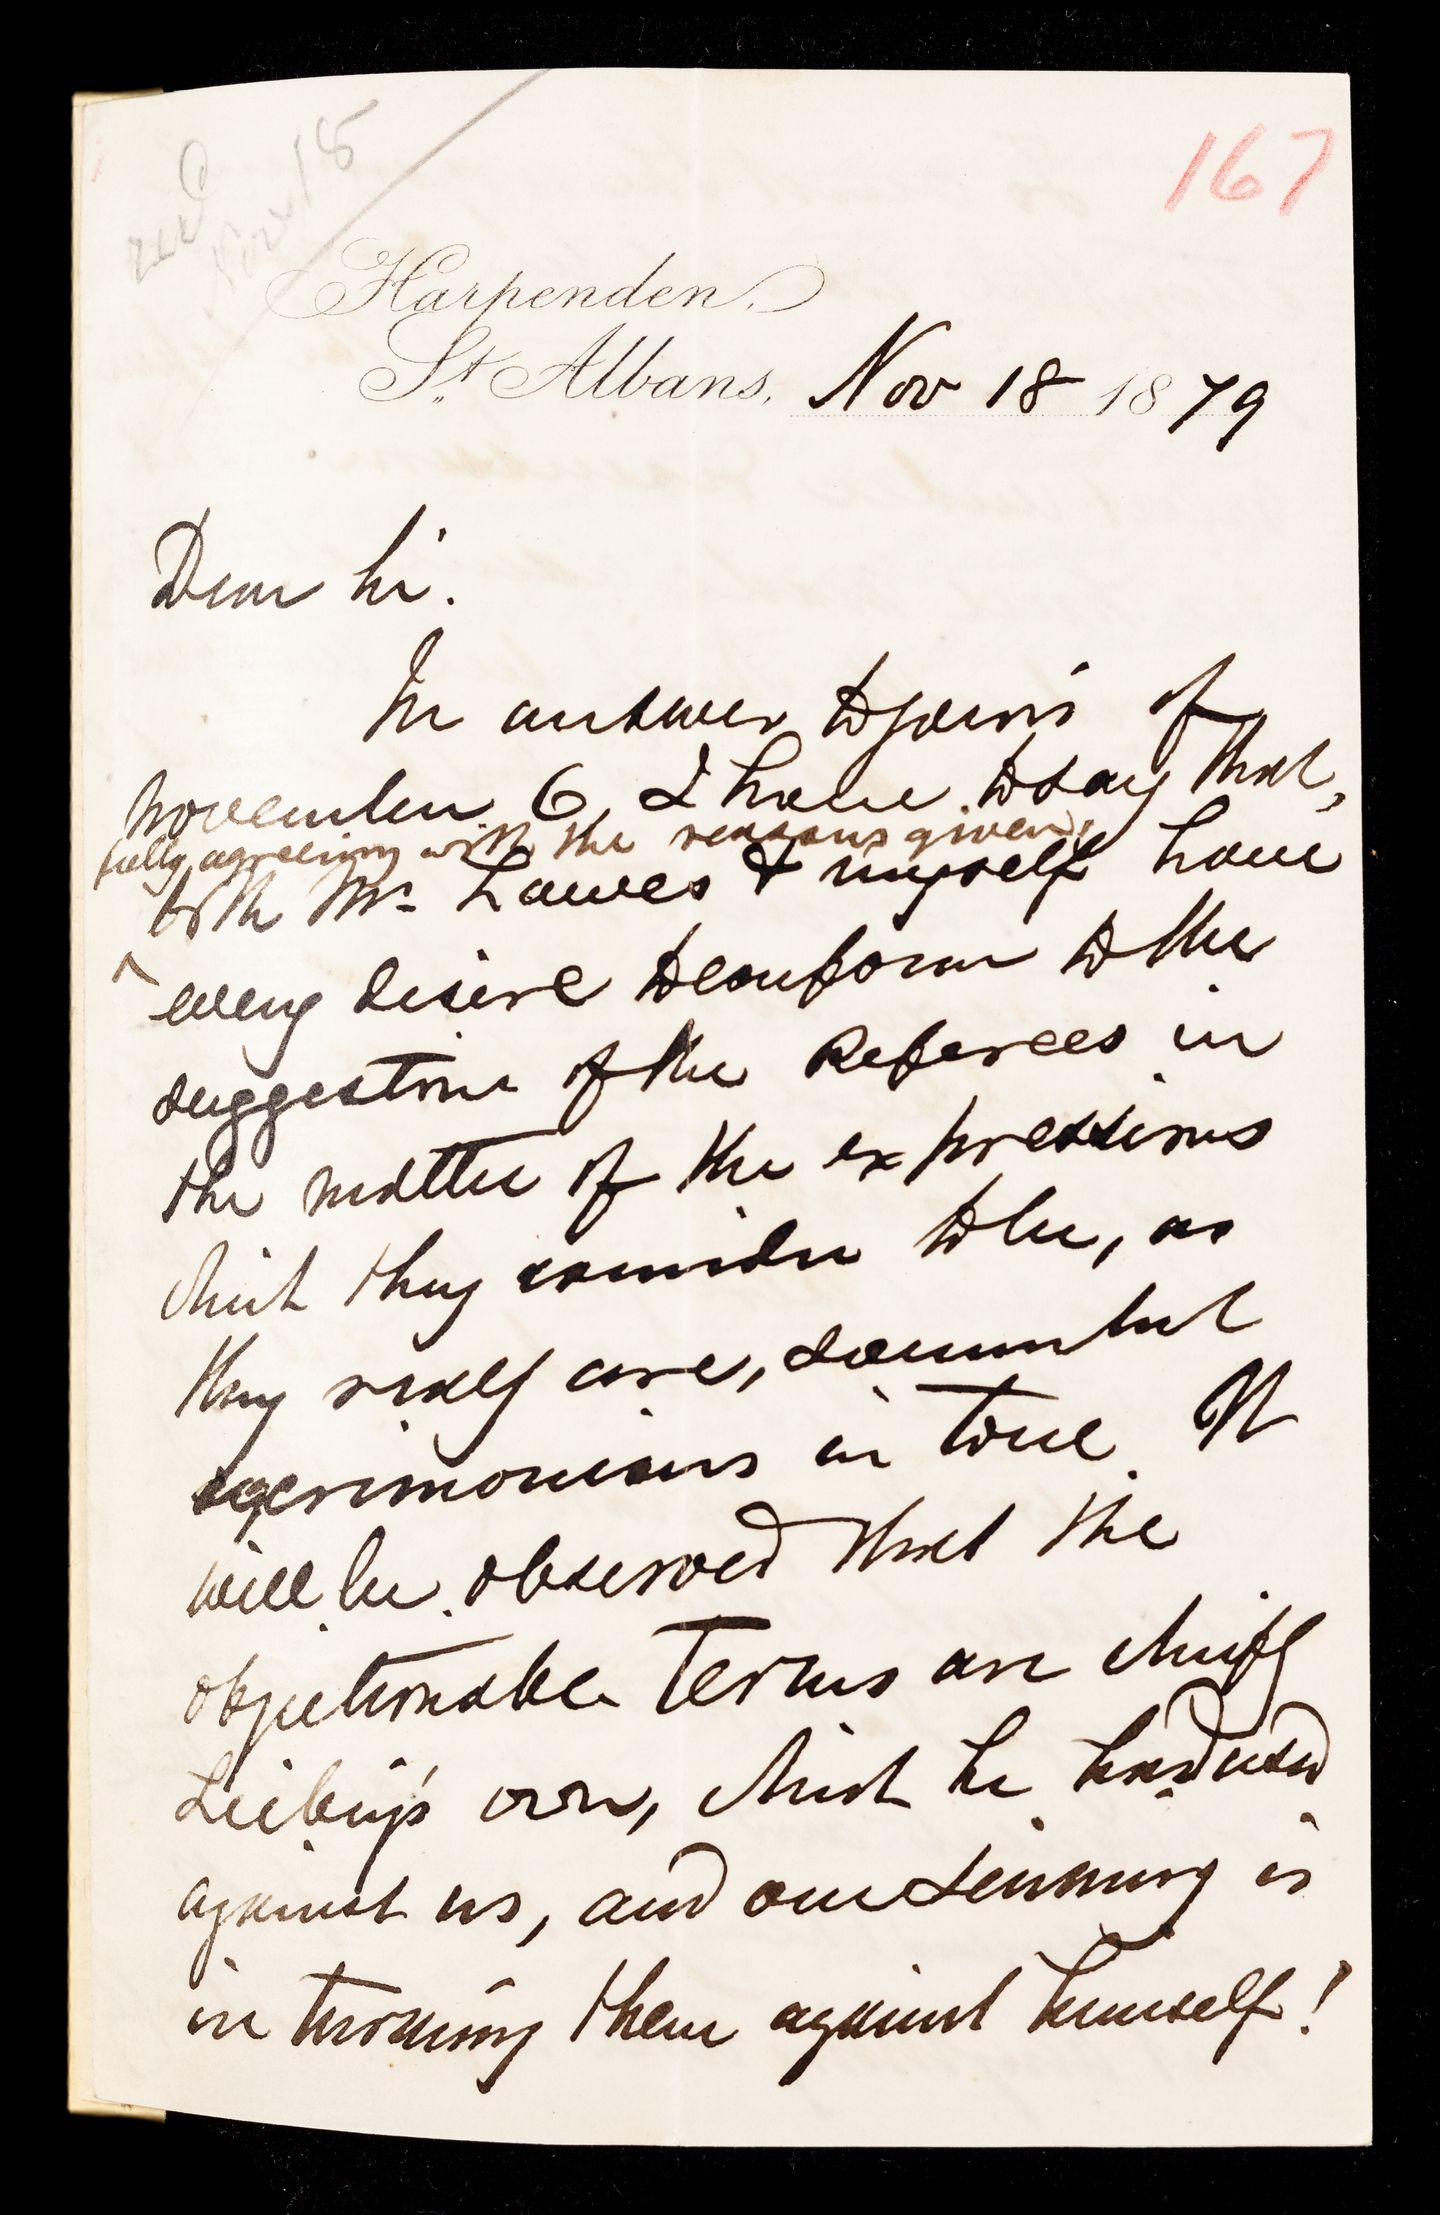 167
recd
Nov 18
Harpenden,
St. Albans, Nov 18 1879
Dear Sir.
In answer to yours of
November 6, I have to say that,
fully agreeing with the reasons given,
both Mr. Lawes & myself have
^
every desire to conform to the
suggestions of the Referees in
the matter of the expressions
which they consider to be, as
they really are, somewhat
acrimonious in tone. It
will be observed that the
objectionable terms are chiefly
Liebig's own, which he had used
against us, and our sinning is
in turning them against himself!